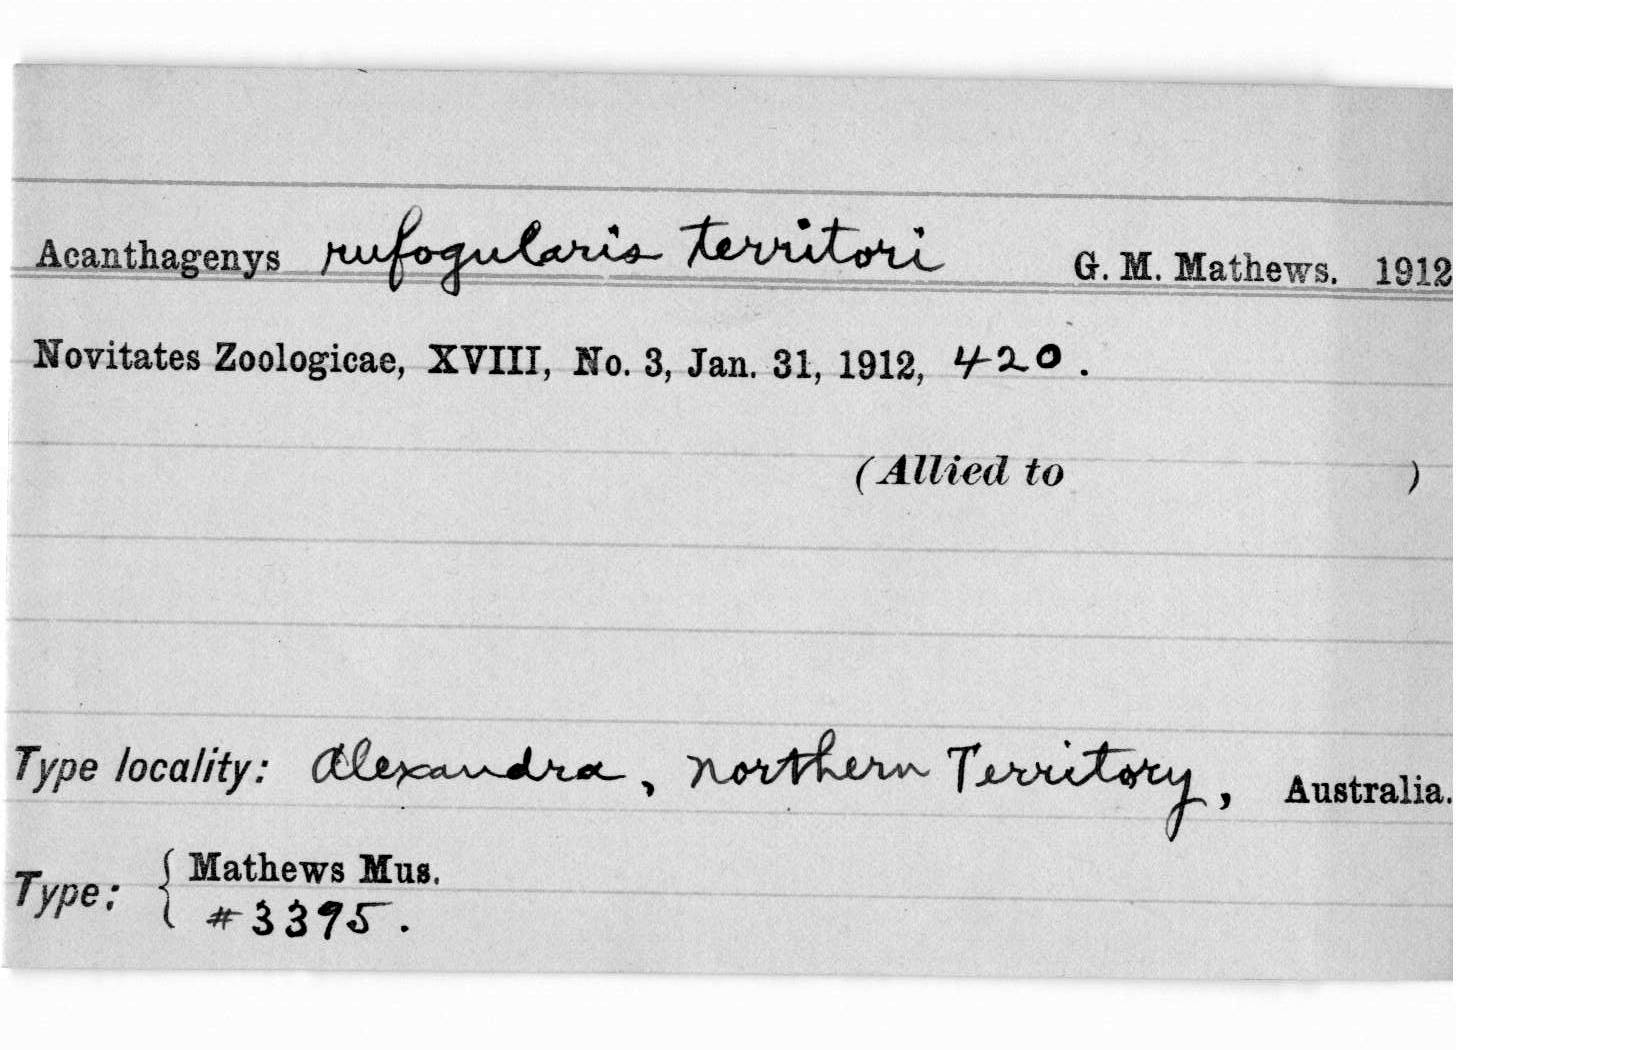 Acanthagenys rufogularis territori G. M. Mathews. 1912
Novitates Zoologicae, XVIII, No. 3, Jan. 31, 1912, 420.
(Allied to )
Type locality: Alexandra, Northern Territory, Australia.
Type: { Mathews Mus.
#3395.